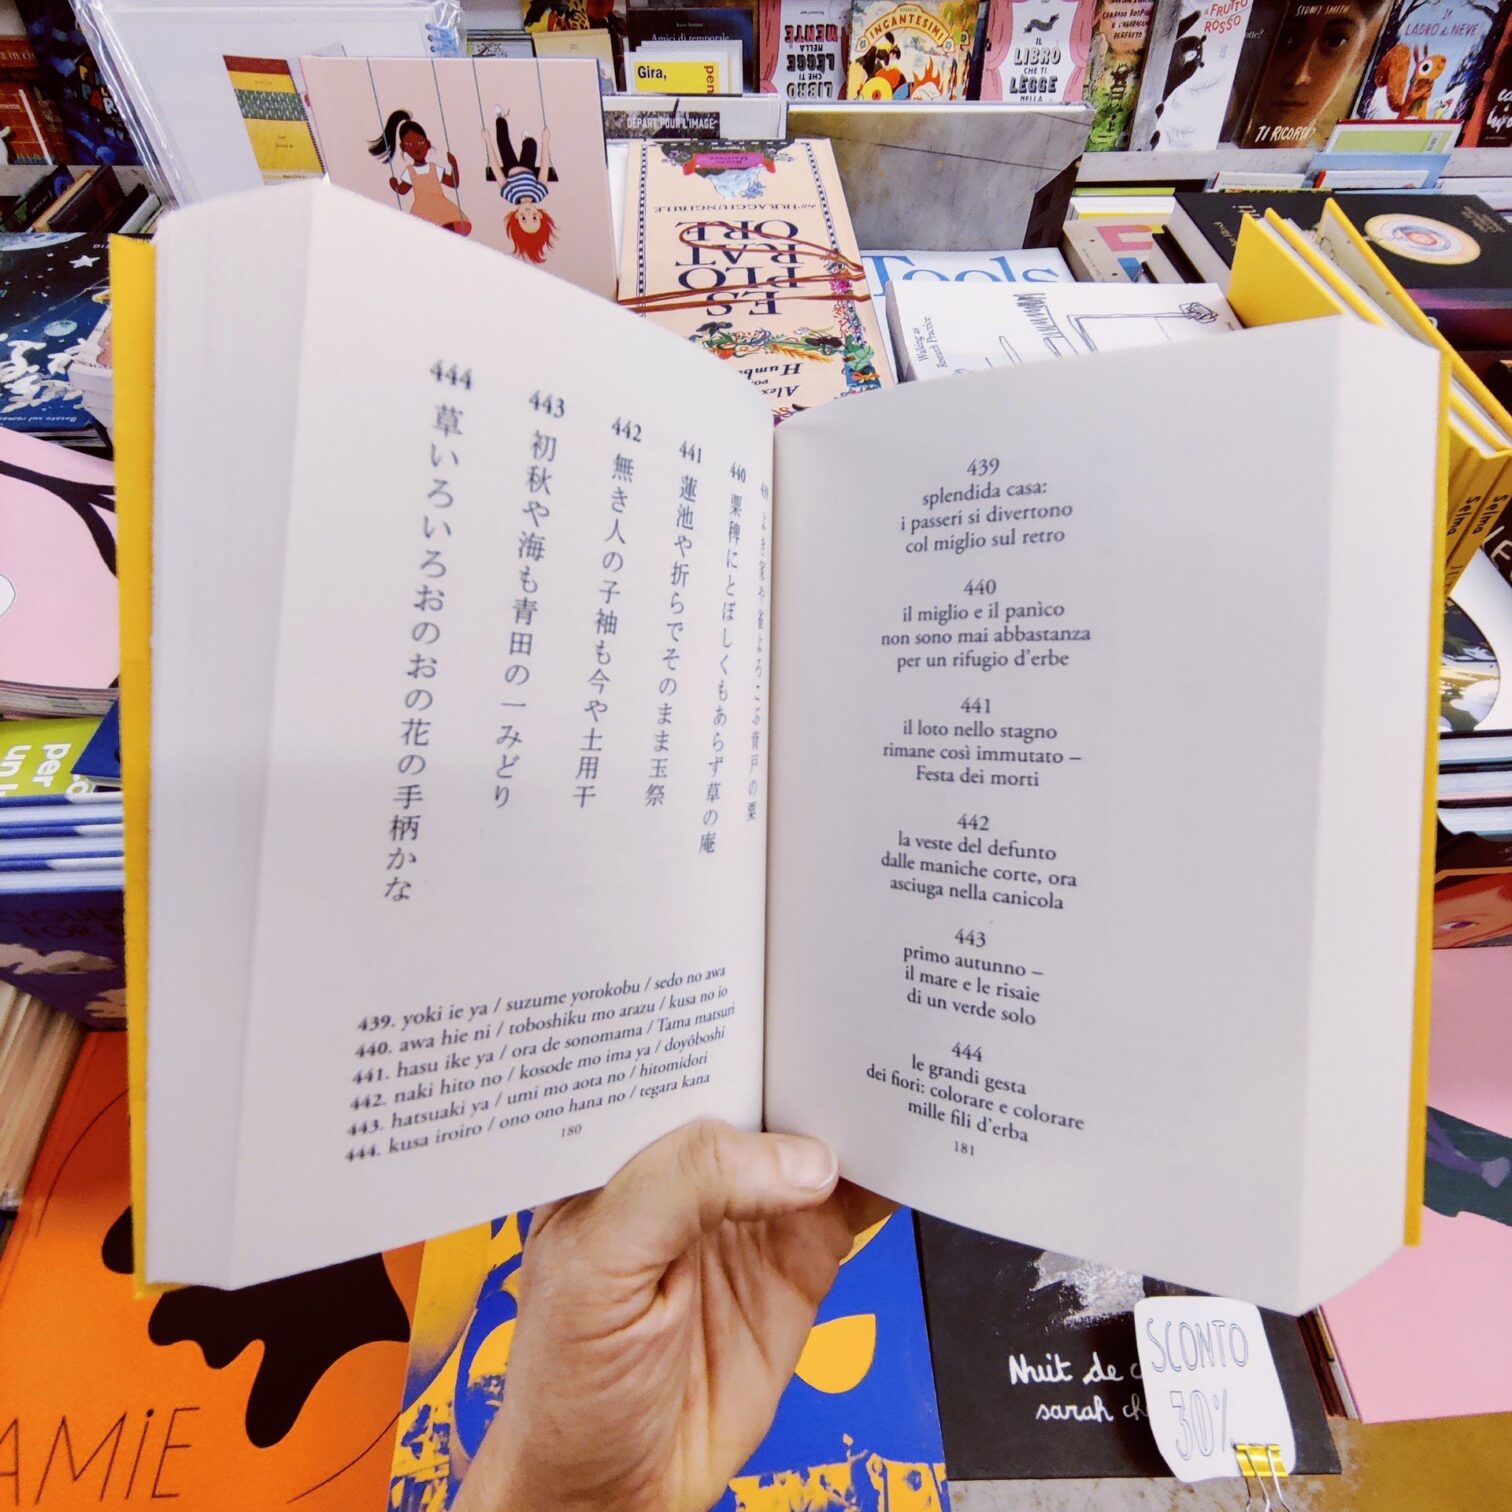 Gira,
INCANTESIMI
IL LIBRO CHE TI LEGGE NELLA
IL FRUTTO ROSSO
SYDNEY SMITH
TI RICORDI?
IL LADRO DI NEVE
DÉPART POUR L'IMAGE
ESPLORATORE
dell'IRRAGGIUNGIBILE
Tools
Walking as
Research Practice
Selma
Selma
439 よき家や雀よろこぶ背戸の粟
440 粟稗にとぼしくもあらず草の庵
441 蓮池や折らでそのまま玉祭
442 無き人の小袖も今や土用干
443 初秋や海も青田の一みどり
444 草いろいろおのおの花の手柄かな
439. yoki ie ya / suzume yorokobu / sedo no awa
440. awa hie ni / toboshiku mo arazu / kusa no io
441. hasu ike ya / ora de sonomama / Tama matsuri
442. naki hito no / kosode mo ima ya / doyōboshi
443. hatsuaki ya / umi mo aota no / hitomidori
444. kusa iroiro / ono ono hana no / tegara kana
180
439
splendida casa:
i passeri si divertono
col miglio sul retro
440
il miglio e il panìco
non sono mai abbastanza
per un rifugio d'erbe
441
il loto nello stagno
rimane così immutato –
Festa dei morti
442
la veste del defunto
dalle maniche corte, ora
asciuga nella canicola
443
primo autunno –
il mare e le risaie
di un verde solo
444
le grandi gesta
dei fiori: colorare e colorare
mille fili d'erba
181
per
AMiE
Nuit de
sarah
SCONTO
30%